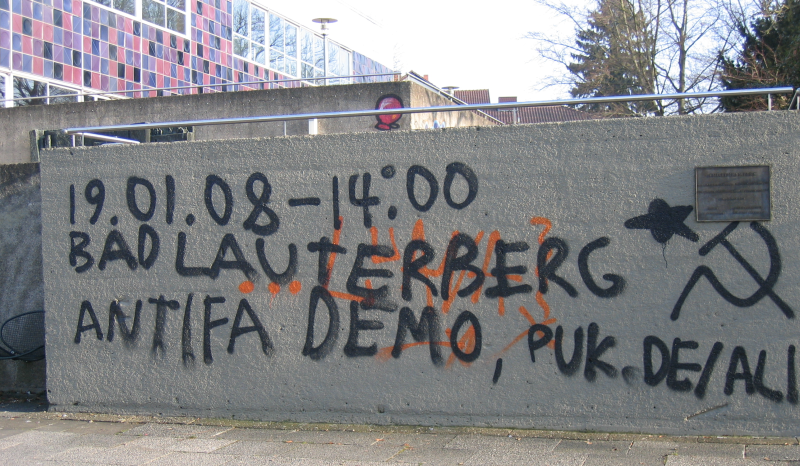 19.01.08-14:00
BAD LAUTERBERG
ANTIFA DEMO, PUK.DE/ALI